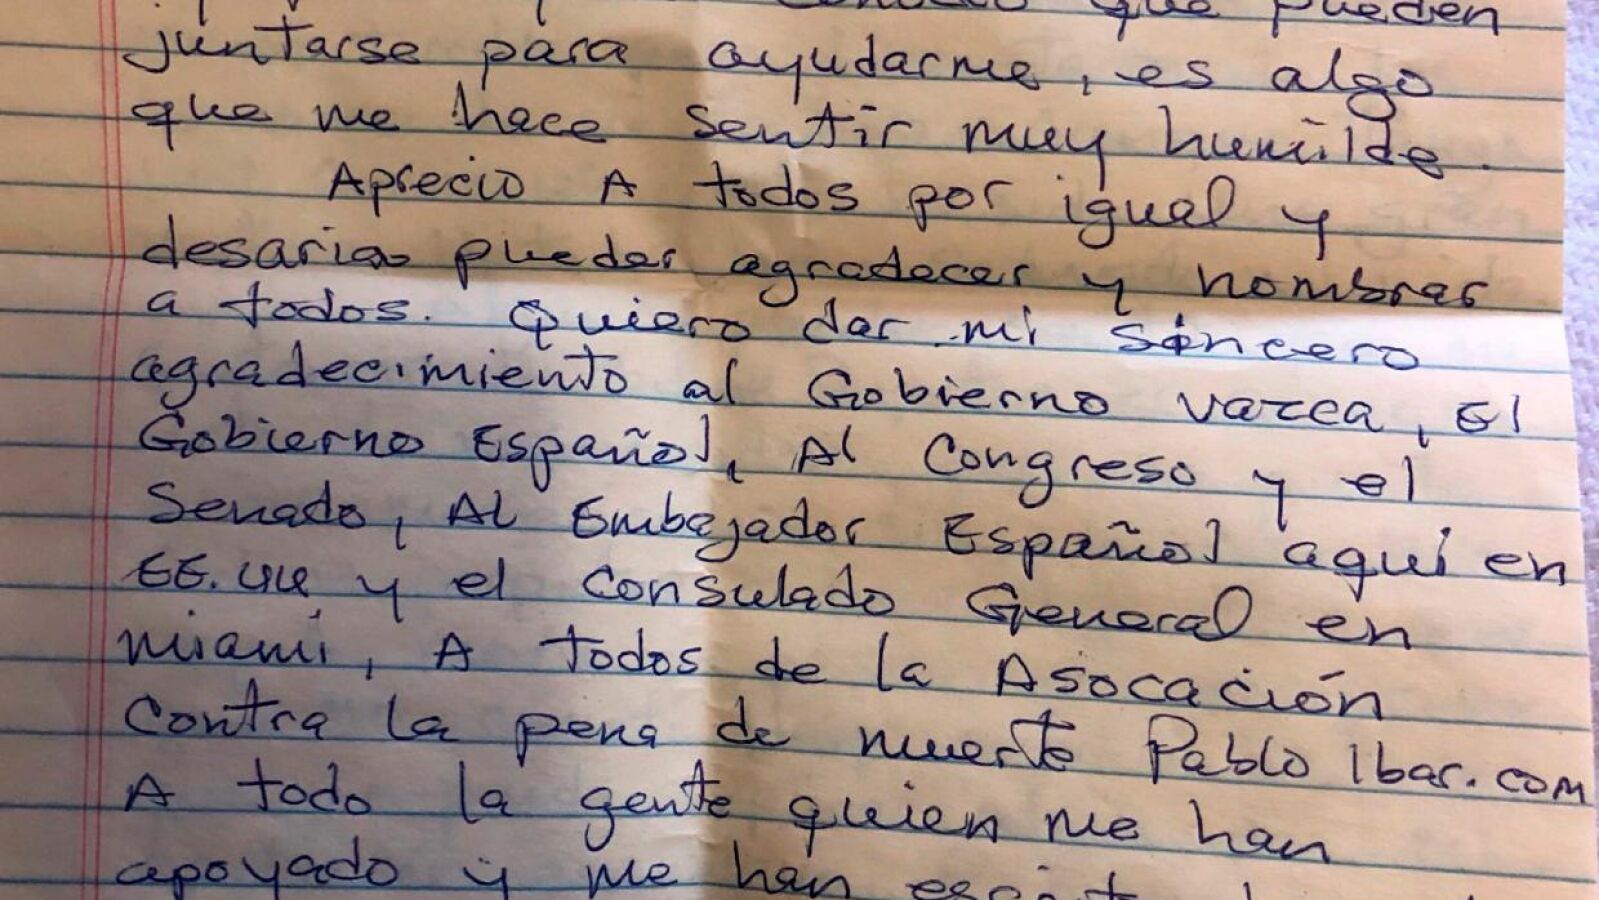 que pueden
juntarse para ayudarme, es algo
que me hace sentir muy humilde.
Aprecio A todos por igual y
desaria pueder agradecer y nombrar
a todos. Quiero dar mi sincero
agradecimiento al Gobierno vazca, El
Gobierno Español, Al Congreso y el
Senado, Al Embajador Español aquí en
EE.UU y el Consulado General en
miami, A todos de la Asocación
Contra la pena de muerte Pablo Ibar.com
A todo la gente quien me han
apoyado y me han